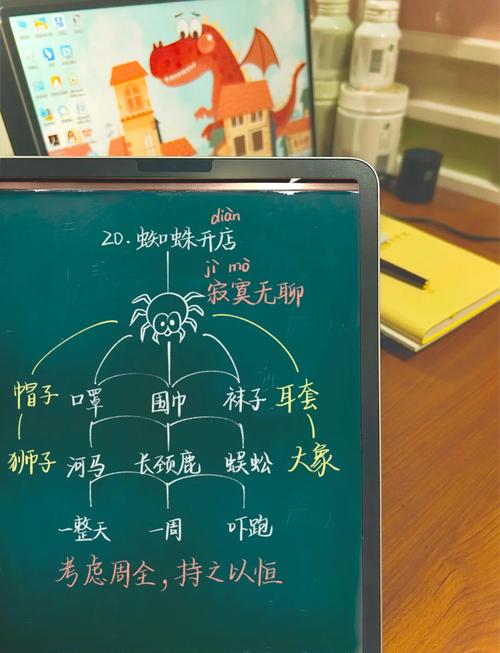 diàn
20.蜘蛛开店
jì mò
寂寞无聊
帽子 口罩 围巾 袜子 耳套
狮子 河马 长颈鹿 蜈蚣 大象
一整天 一周 吓跑
考虑周全，持之以恒